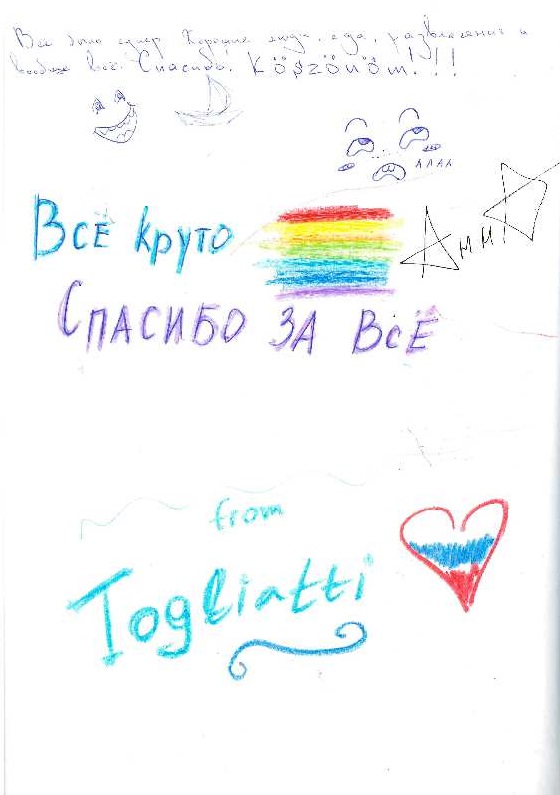 Всё было супер. Хорошие люди, еда, развлечения и
вообще всё. Спасибо! Köszönöm!!!
AAAA
Всё круто
Анна
Спасибо за всё
from
Togliatti